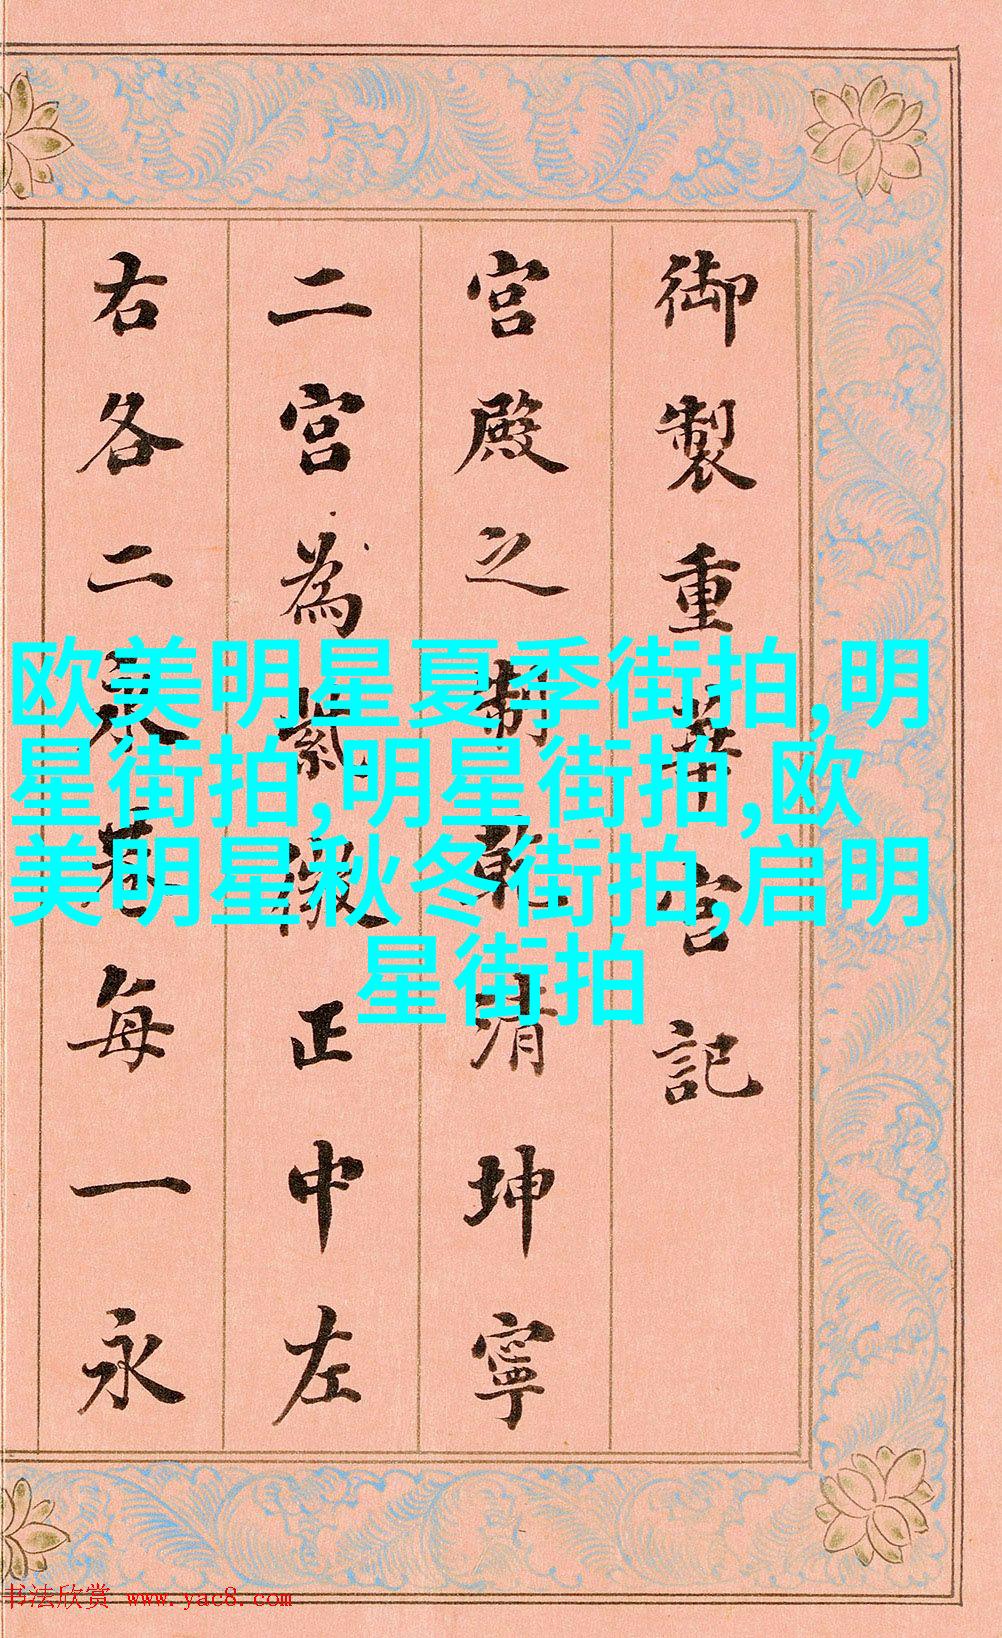 御製重華宮記
宮殿之制乾清坤寧
二宮為紫微正中左
右各二永巷每一永
欧美明星夏季街拍,明
星街拍,明星街拍,欧
美明星秋冬街拍,启明
星街拍
书法欣赏 www.yac8.com